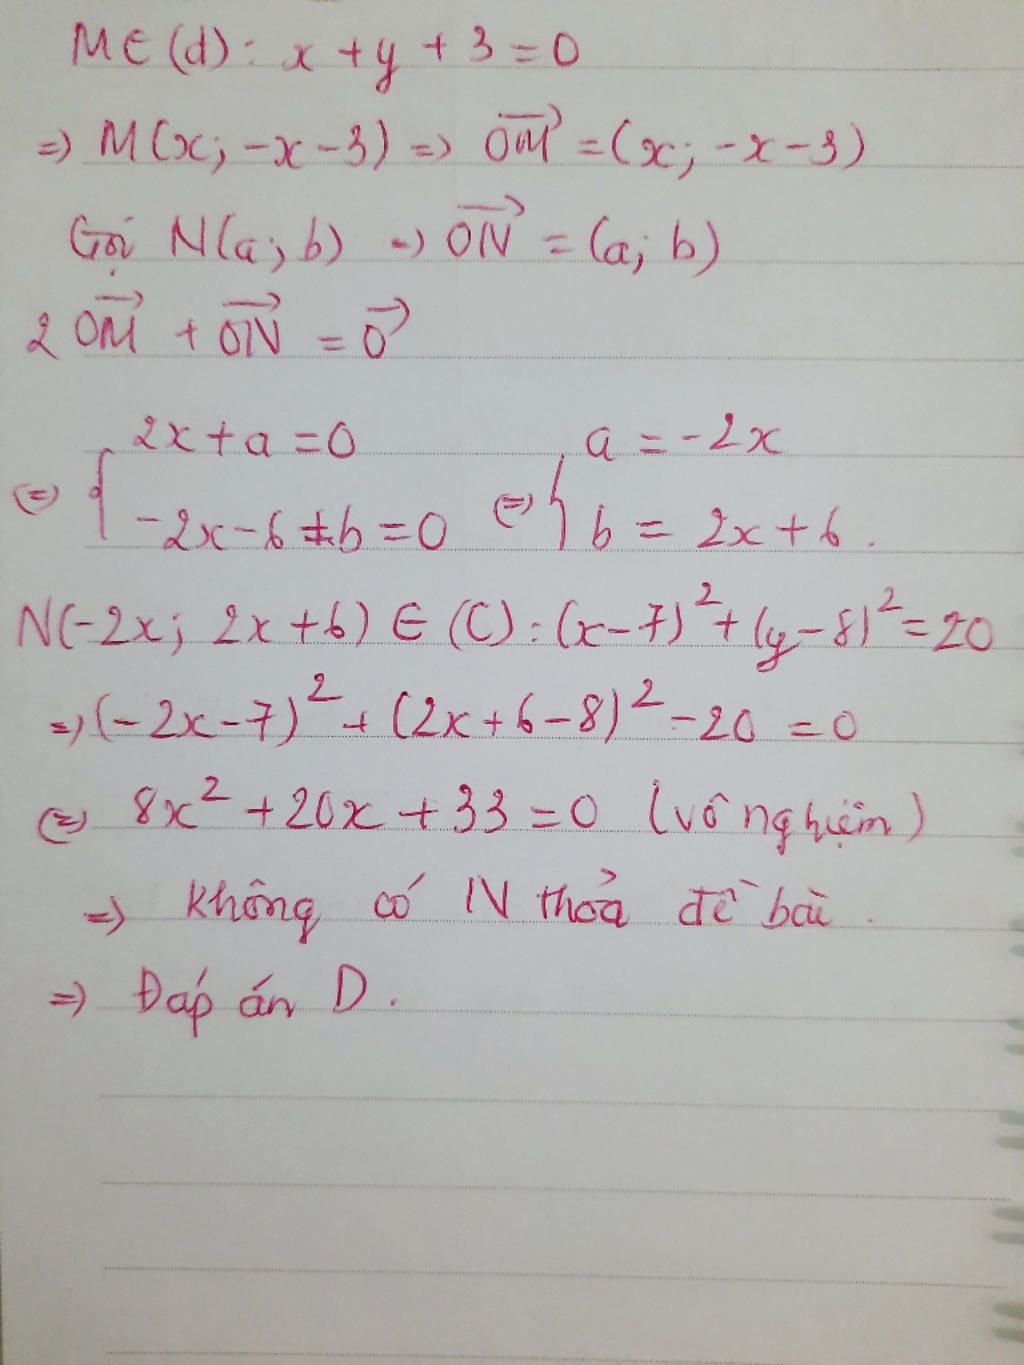 M∈(d): x + y + 3 = 0
=> M(x; -x - 3) => OM→ = (x; -x - 3)
Gọi N(a; b) => ON→ = (a; b)
2 OM→ + ON→ = 0→
<=> { 2x + a = 0 <=> { a = -2x
-2x - 6 + b = 0 b = 2x + 6.
N(-2x; 2x + 6) ∈ (C): (x - 7)² + (y - 8)² = 20
=> (-2x - 7)² + (2x + 6 - 8)² - 20 = 0
<=> 8x² + 20x + 33 = 0 (vô nghiệm)
=> không có N thỏa đề bài.
=> Đáp án D.